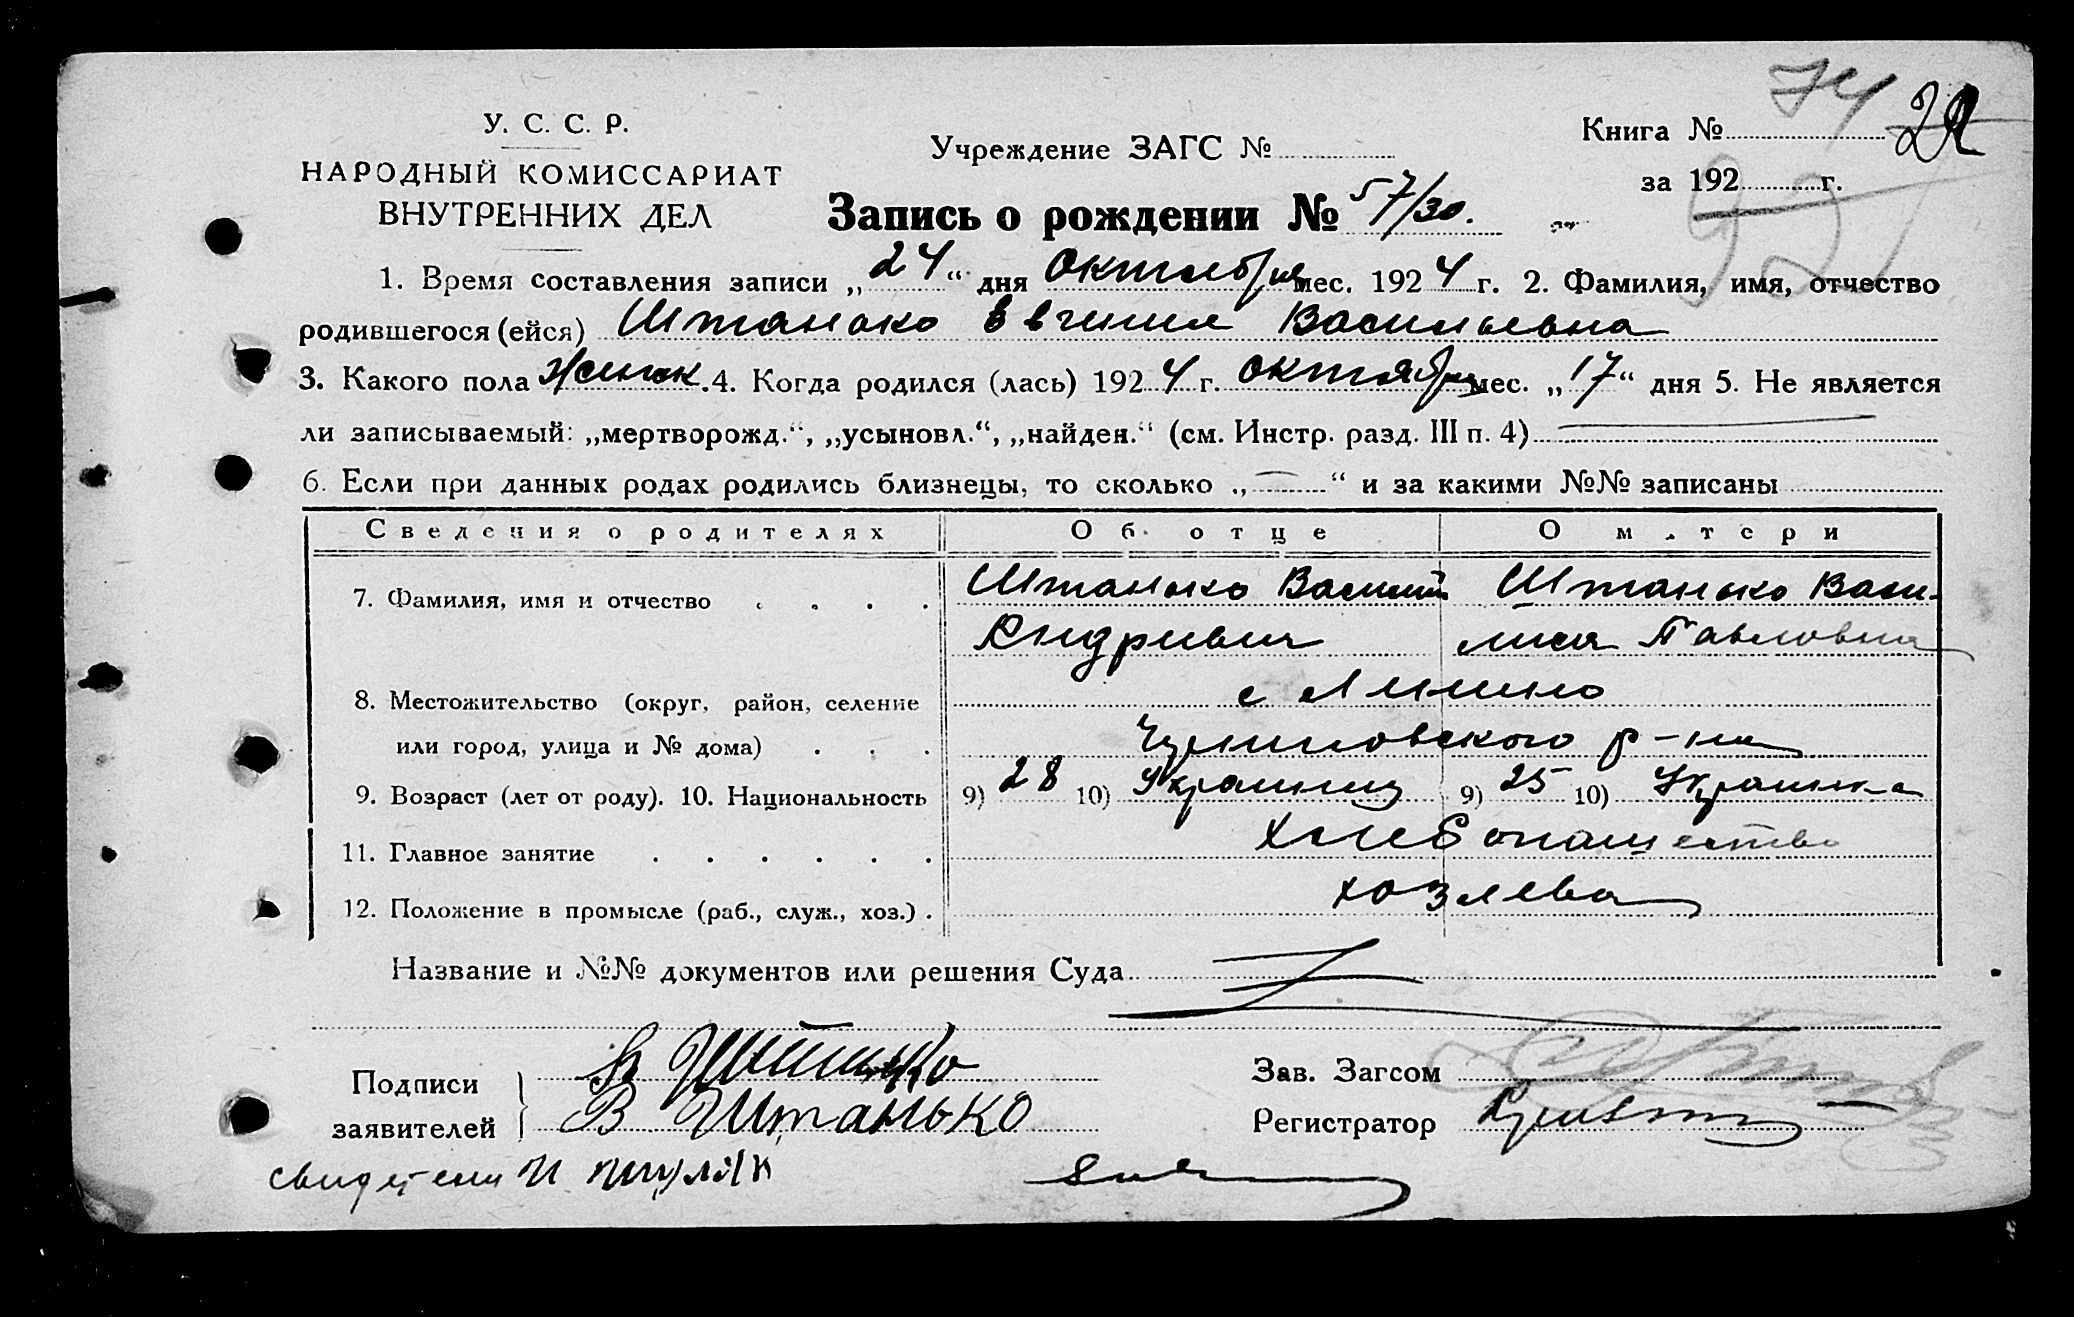 74 22
У. С. С. Р.
НАРОДНЫЙ КОМИССАРИАТ
ВНУТРЕННИХ ДЕЛ
Учреждение ЗАГС №
Книга №
за 192 г.
Запись о рождении № 57/30.
1. Время составления записи „24“ дня Октября мес. 1924 г. 2. Фамилия, имя, отчество
родившегося (ейся) Штанько Евгения Васильевна
3. Какого пола женск. 4. Когда родился (лась) 1924 г. октября мес. „17“ дня 5. Не является
ли записываемый: „мертворожд.“, „усыновл.“, „найден.“ (см. Инстр. разд. III п. 4)
6. Если при данных родах родились близнецы, то сколько „—“ и за какими №№ записаны
Сведения о родителях Об отце О м.тери
7. Фамилия, имя и отчество Штанько Василий Штанько Васи-
Андреевич лиса Павловна
8. Местожительство (округ, район, селение с
или город, улица и № дома) р-на
9. Возраст (лет от роду). 10. Национальность 9) 28 10) Украинец 9) 25 10) Украинка
11. Главное занятие хлебопашество
12. Положение в промысле (раб., служ., хоз.) хозяева
Название и №№ документов или решения Суда
Подписи
заявителей В Штанько
Зав. Загсом
Регистратор
свидетели И